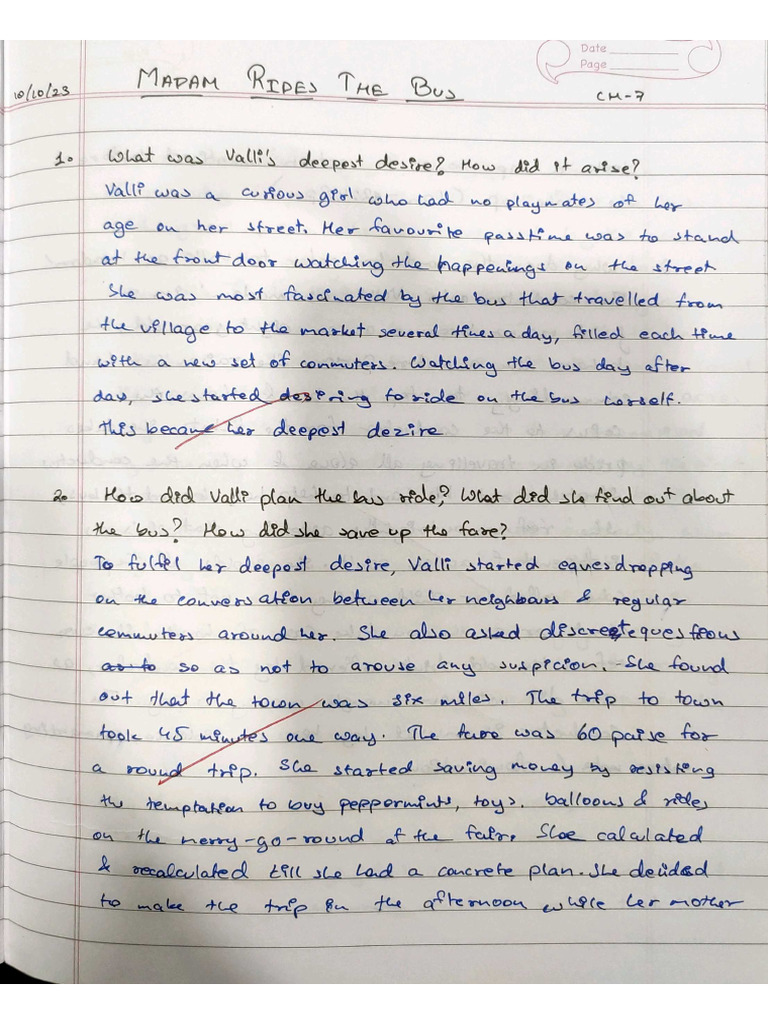 Date
Page
10/10/23 MADAM RIDES THE BUS CH-7
1. What was Valli's deepest desire? How did it arise?
Valli was a curious girl who had no playmates of her
age on her street. Her favourite passtime was to stand
at the front door watching the happenings on the street
She was most fascinated by the bus that travelled from
the village to the market several times a day, filled each time
with a new set of commuters. Watching the bus day after
day, she started desiring to ride on the bus herself.
This became her deepest dezire
2. How did Valli plan the bus ride? What did she find out about
the bus? How did she save up the fare?
To fulfil her deepest desire, Valli started equesdropping
on the conversation between her neighbours & regular
commuters around her. She also asked discreete questions
as to so as not to arouse any suspicion. She found
out that the town was six miles. The trip to town
took 45 minutes one way. The fare was 60 paise for
a round trip. She started saving money by resisting
the temptation to buy peppermints, toys. balloons & rides
on the merry-go-round at the fair. She calculated
& recalculated till she had a concrete plan. She decided
to make the trip in the afternoon while her mother